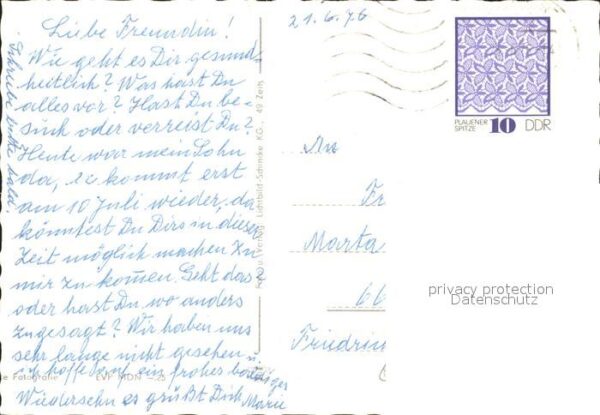 Liebe Freundin!
Wie geht es Dir gesund-
heitlich? Was hast Du
alles vor? Hast Du be-
such oder verreist Du?
Heute war mein Sohn
da, er kommt erst
am 10 Juli wieder, da
könntest Du Dirs in dieser
Zeit möglich machen zu
mir zu kommen. Geht das?
oder hast Du wo anders
zugesagt? Wir haben uns
sehr lange nicht gesehen u.
ich hoffe auf ein frohes baldiges
Wiedersehn es grüßt Dich
Marie
Schreibe bitte bald.
e Fotografie
EVP MDN
Verlag Lichtbild-Schincke KG., 49 Zeitz
21.6.76
PLAUENER
SPITZE
10 DDR
An
Fr
Marta
66
Friedrin
privacy protection
Datenschutz